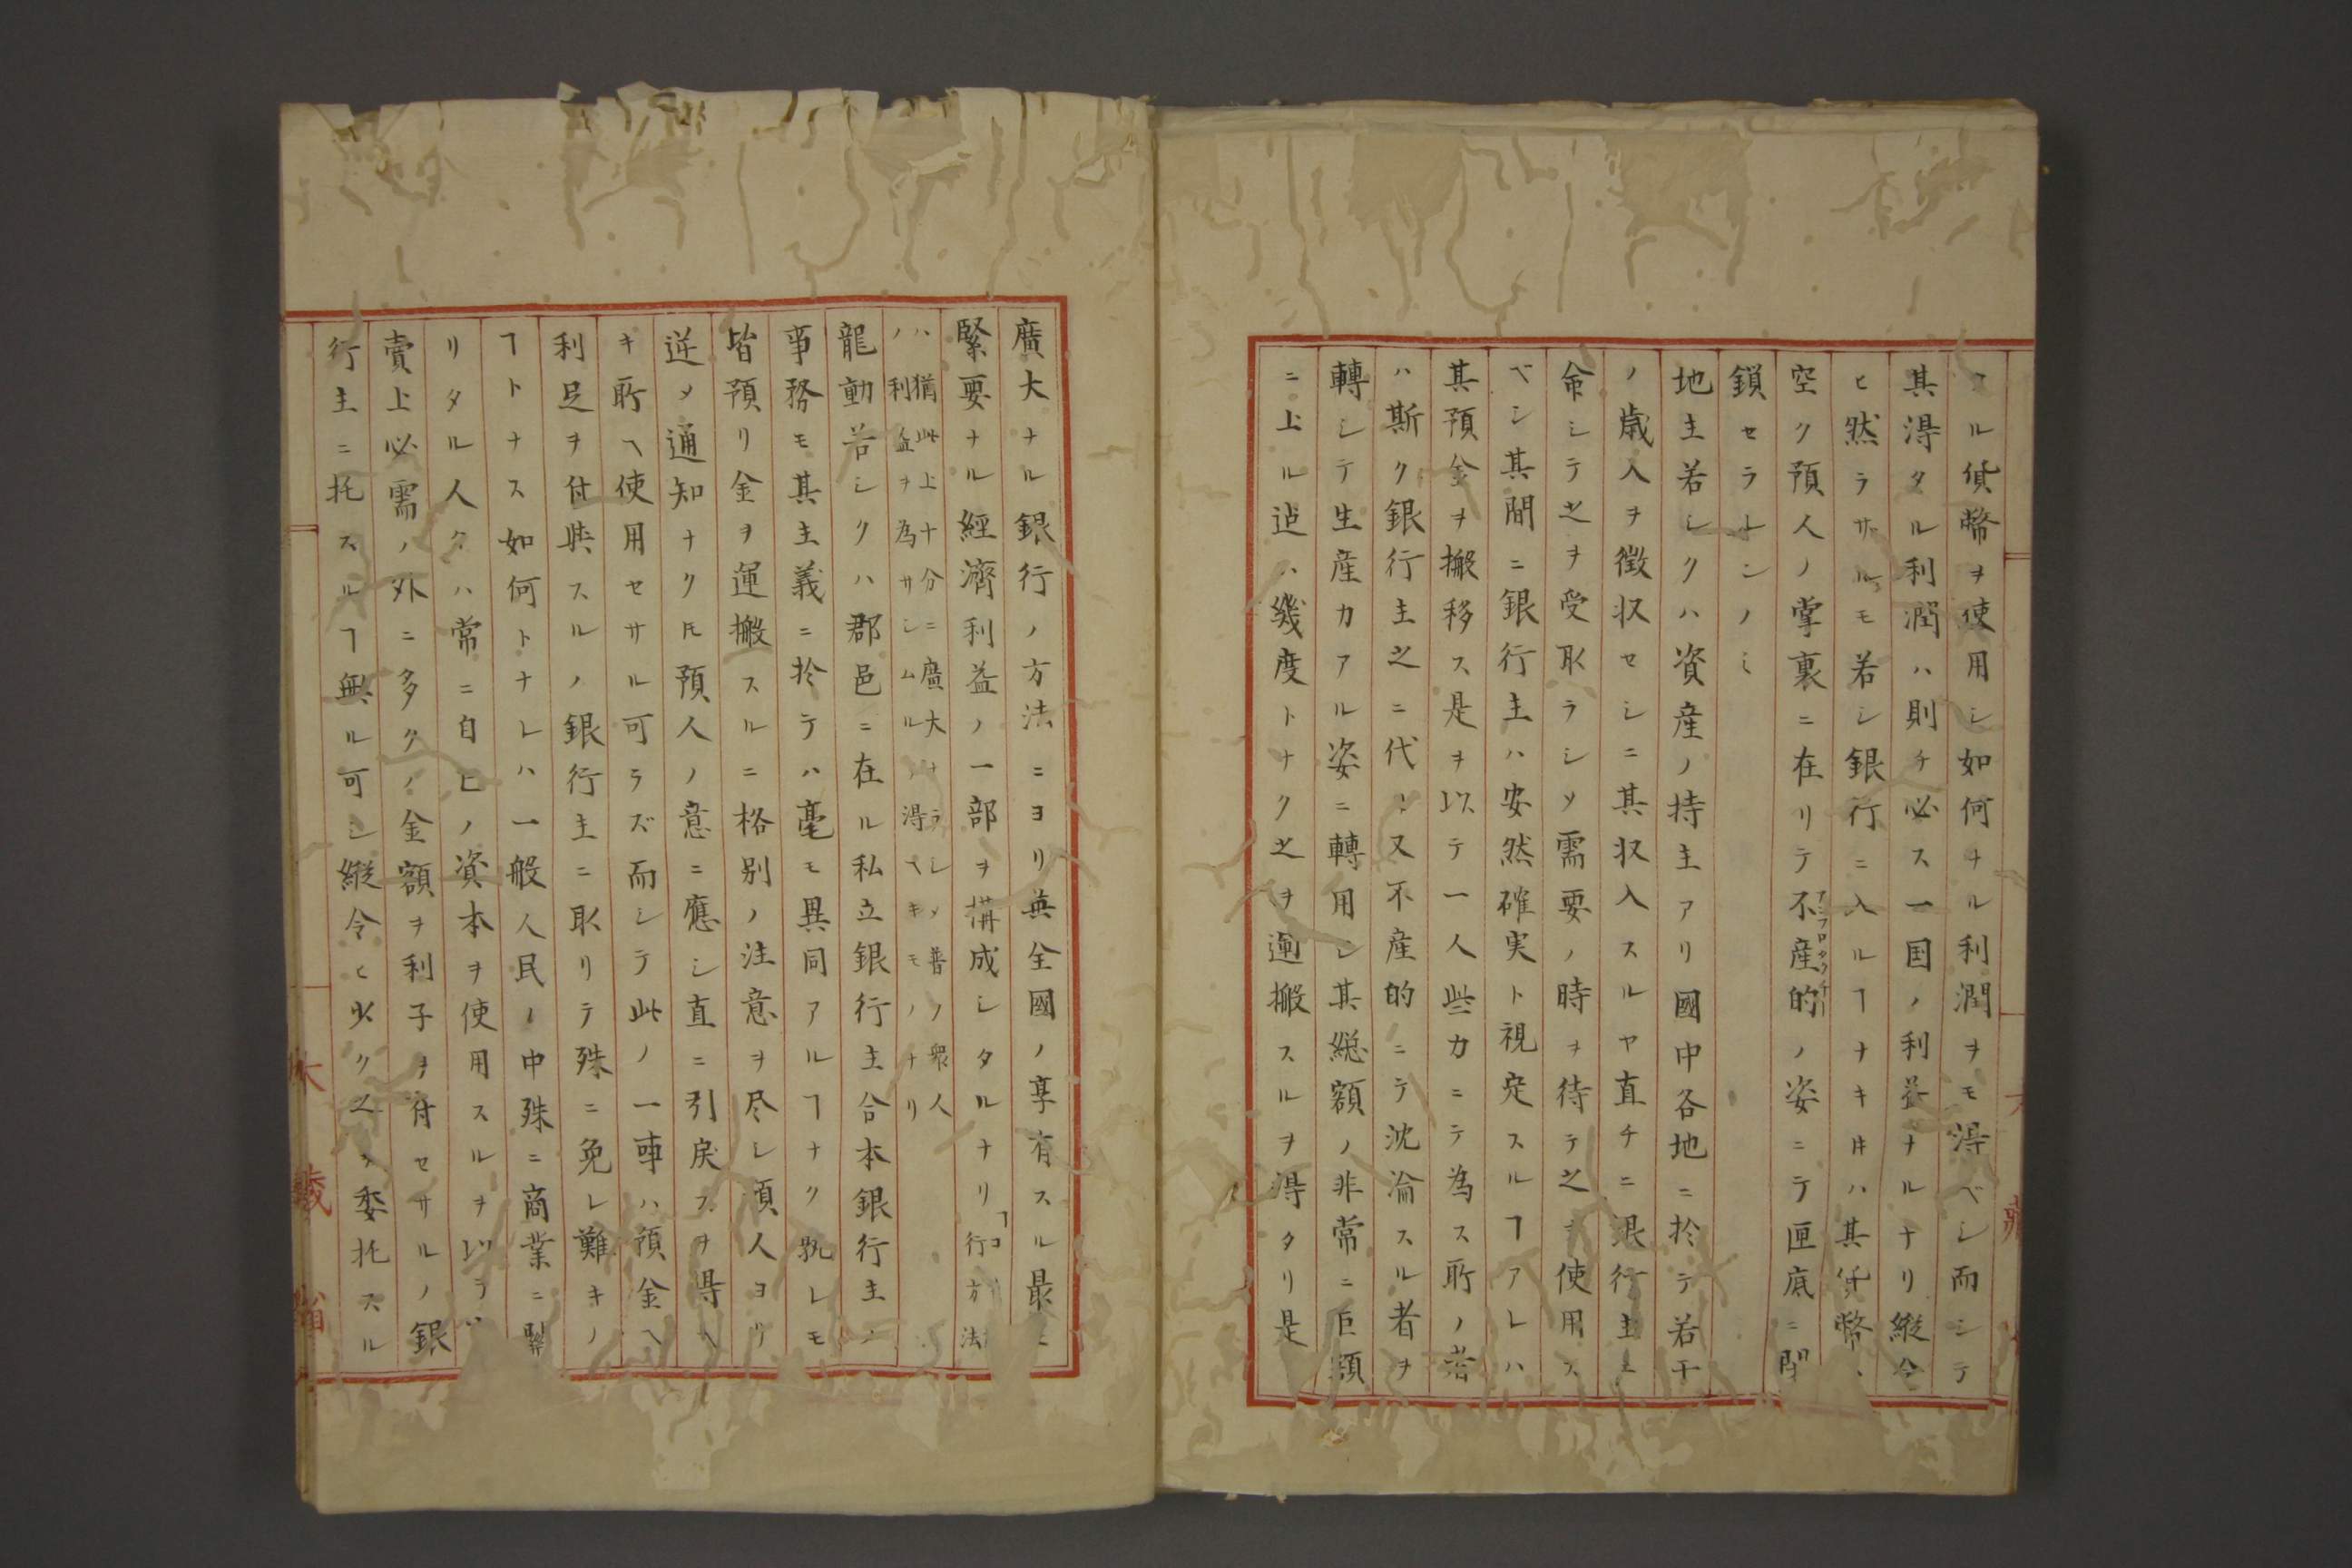 ル貨幣ヲ使用シ如何ナル利潤ヲモ得ベシ而シテ
其得タル利潤ハ則チ必ス一国ノ利益ナルナリ縦令
ヒ然ラザルモ若シ銀行ニ入ルヿナキ𪜈ハ其貨幣ハ
空ク預人ノ掌裏ニ在リテ不産的ノ姿ニテ匣底ニ閉
鎖セラレンノミ
地主若シクハ資産ノ持主アリ國中各地ニ於テ若干
ノ歳入ヲ徴収セシニ其収入スルヤ直チニ銀行主ニ
命シテ之ヲ受取ラシメ需要ノ時ヲ待テ之ヲ使用ス
ベシ其間ニ銀行主ハ安然確実ト視定スルヿアレハ
其預金ヲ搬移ス是ヲ以テ一人些カニテ為ス所ノ者
ハ斯ク銀行主之ニ代リ又不産的ニテ沈淪スル者ヲ
轉シテ生産力アル姿ニ轉用シ其総額ノ非常ニ巨額
ニ上ル迠ハ幾度トナク之ヲ運搬スルヲ得タリ是
廣大ナル銀行ノ方法ニヨリ英全國ノ享有スル最モ
緊要ナル經濟利益ノ一部ヲ搆成シタルナリ行方法
ハ猶此上十分ニ廣大ナラシメ普ク衆人
ノ利益ヲ為サシムルヲ得ベキモノナリ
龍動若シクハ郡邑ニ在ル私立銀行主合本銀行主ノ
事務モ其主義ニ於テハ毫モ異同アルヿナク孰レモ
皆預リ金ヲ運搬スルニ格別ノ注意ヲ尽シ預人ヨリ
逆メ通知ナク𪜈預人ノ意ニ應シ直ニ引戻スヲ得ヘ
キ所ヘ使用セサル可ラズ而シテ此ノ一事ハ預金ヘ
利足ヲ付與スルノ銀行主ニ取リテ殊ニ免レ難キノ
ヿトナス如何トナレハ一般人民ノ中殊ニ商業ニ關
リタル人々ハ常ニ自已ノ資本ヲ使用スルヲ以テ
賣上必需ノ外ニ多クノ金額ヲ利子ヲ付セサルノ銀
行主ニ托スルヿ無ル可シ縦令ヒ少ク之ヲ委托スル